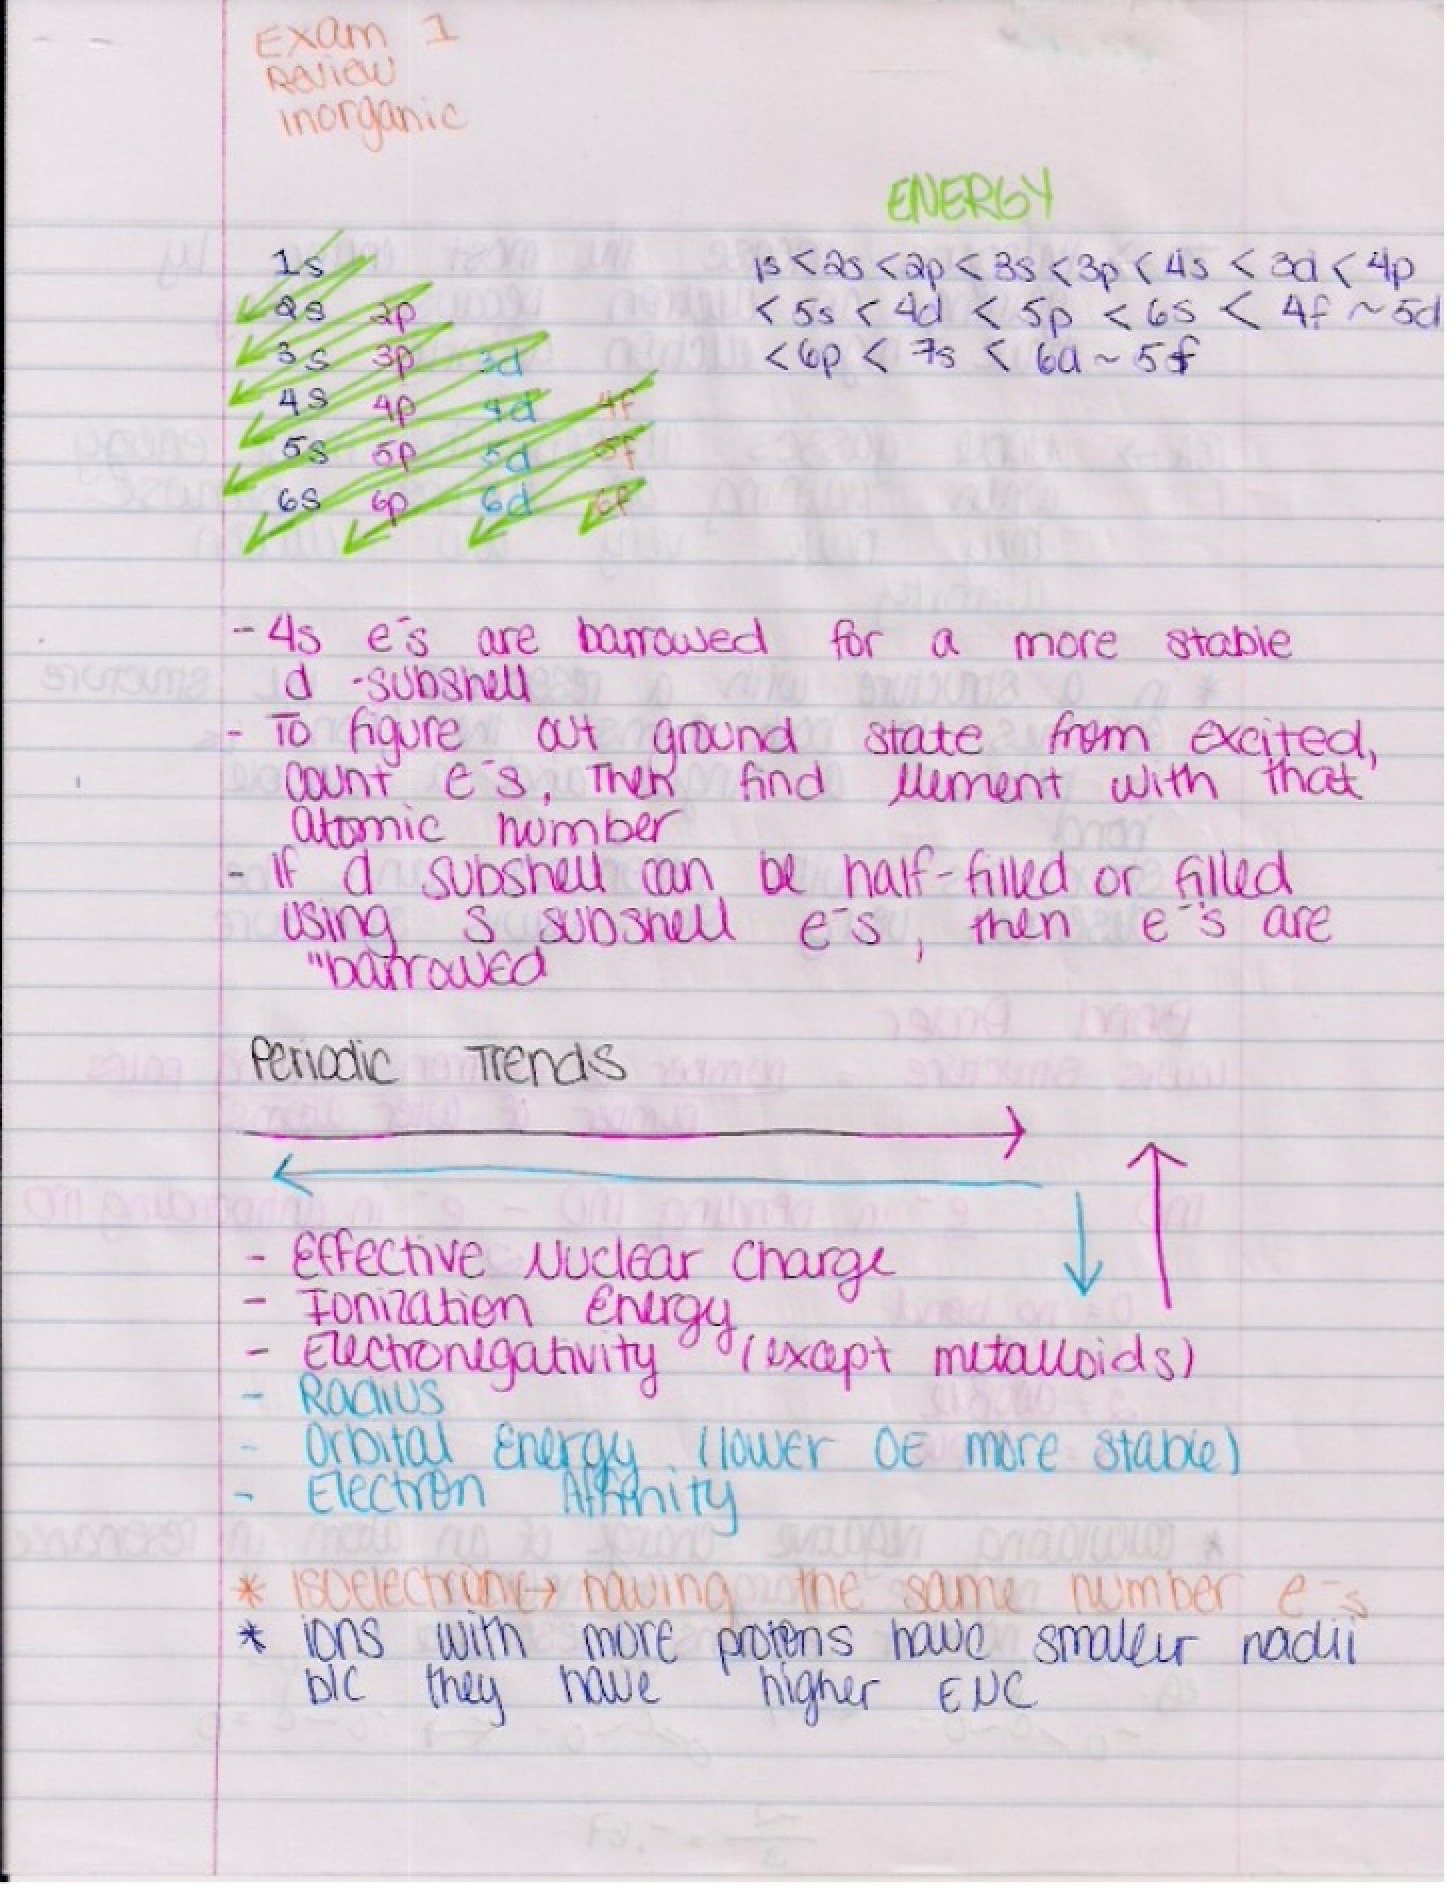 Exam 1
Review
inorganic
ENERGY
1s
2s 2p
3s 3p 3d
4s 4p 4d 4f
5s 5p 5d 5f
6s 6p 6d 6f
1s < 2s < 2p < 3s < 3p < 4s < 3d < 4p
< 5s < 4d < 5p < 6s < 4f ~ 5d
< 6p < 7s < 6d ~ 5f
- 4s e⁻s are barrowed for a more stable
d -subshell
- To figure out ground state from excited,
count e⁻s, then find element with that
atomic number
- If d subshell can be half-filled or filled
using s subshell e⁻s, then e⁻s are
"barrowed
Periodic Trends
- Effective Nuclear Charge
- Ionization Energy
- Electronegativity (except metalloids)
- Radius
- Orbital Energy (lower OE more stable)
- Electron Affinity
* Isoelectronic → having the same number e⁻s
* ions with more protons have smaller radii
b/c they have higher ENC